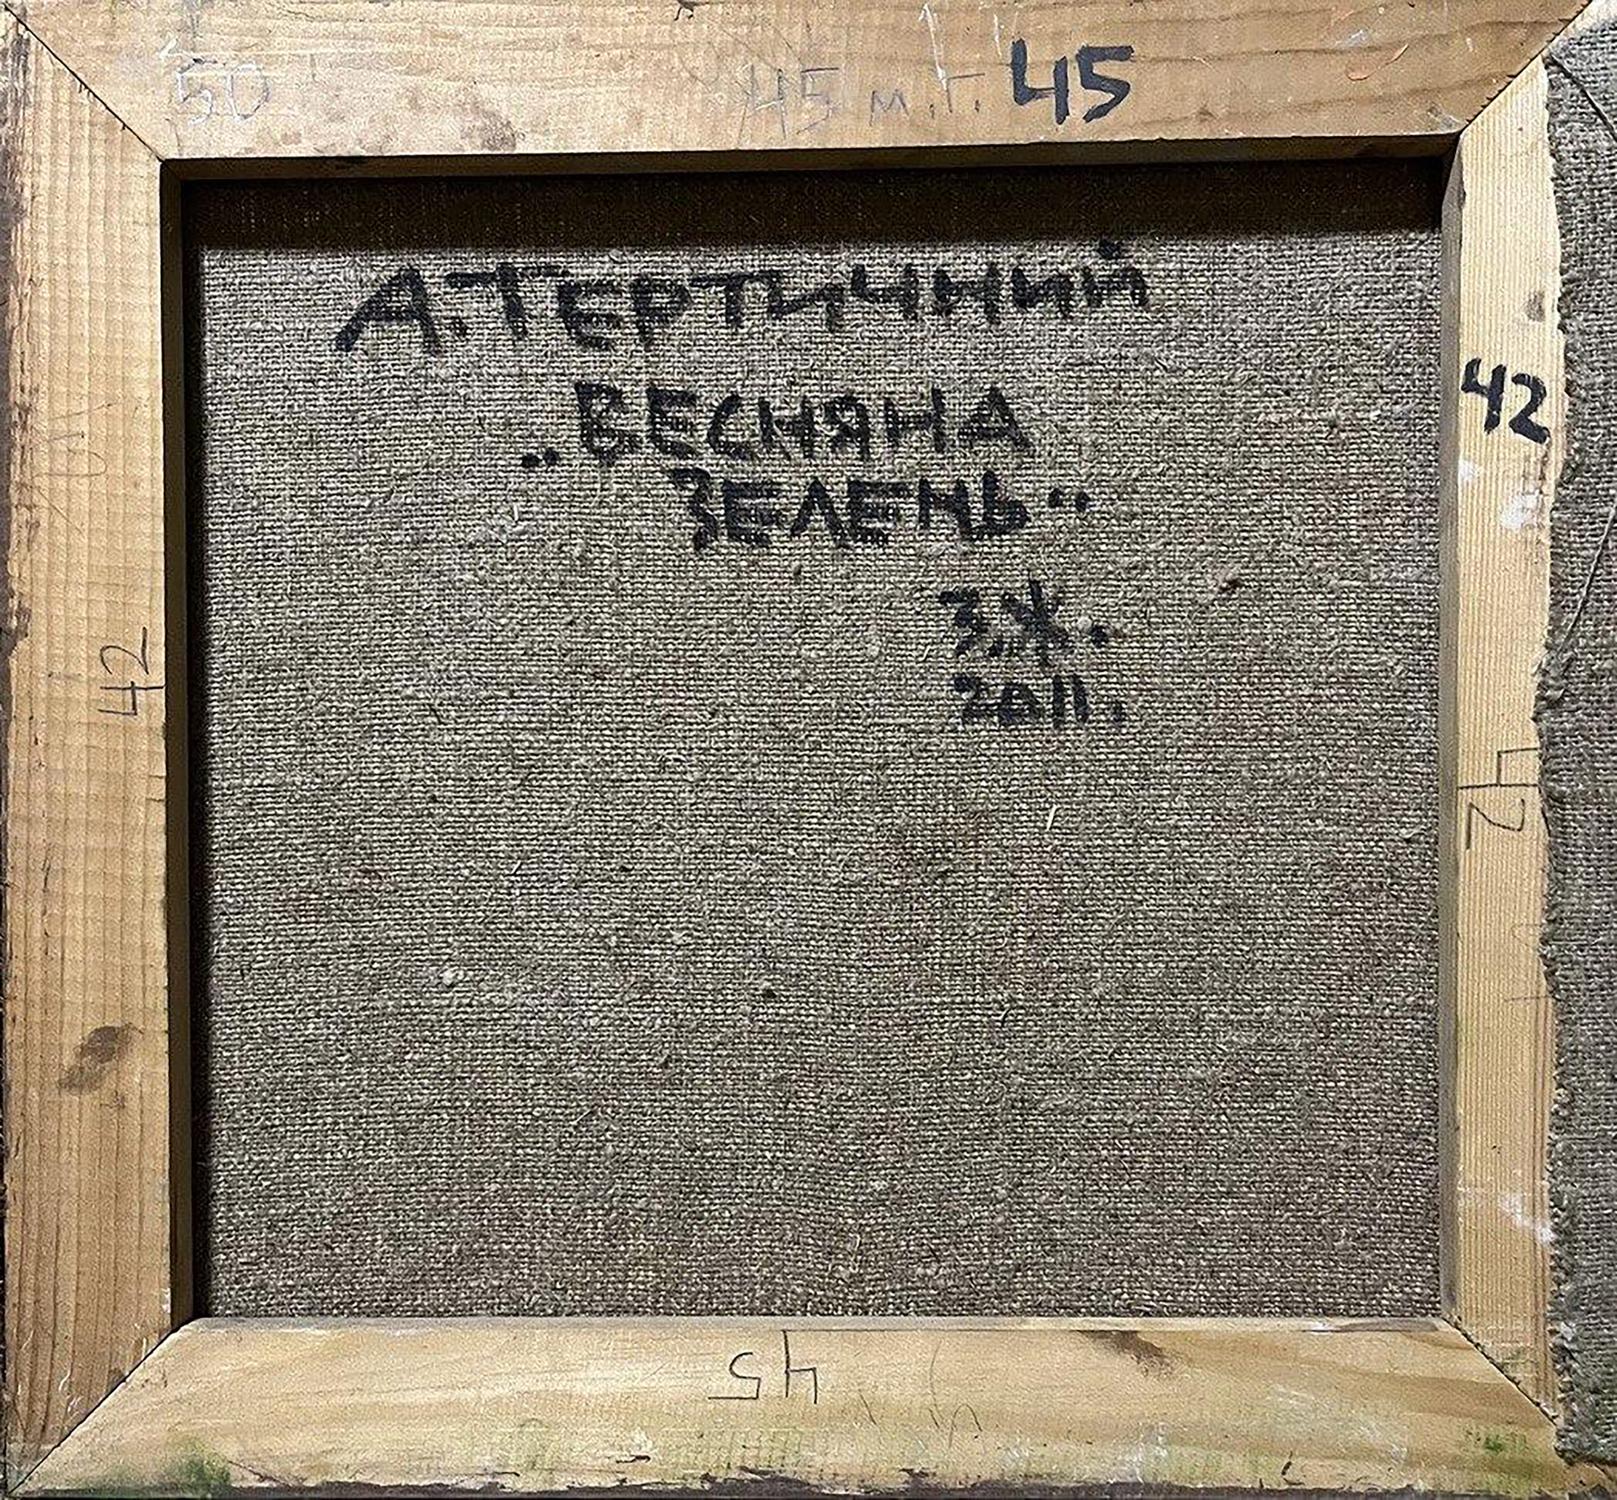 50 45 м.г. 45
А. ТЕРТИЧНИЙ
„ВЕСНЯНА
ЗЕЛЕНЬ"
З.Ж.
2011.
42
42
42
45